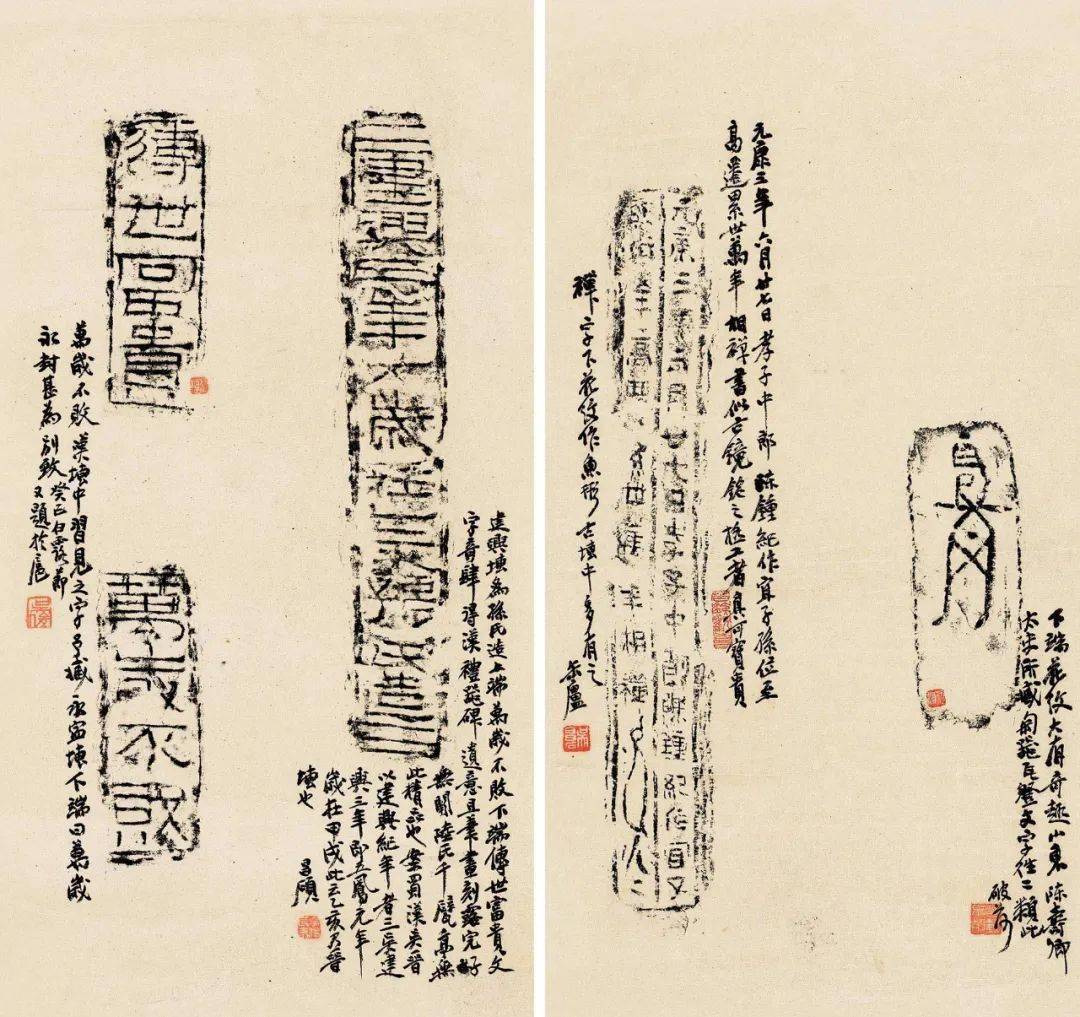 下端花紋大有奇趣山東陳壽卿
太史所藏匋器瓦豋文字往二類此
破荷
元康三年六月廿七日孝子中郎陳鍾紀作宜子孫位至
高遷累世萬年相禪書似古鏡銘之極工者真可寶貴
元康三年六月廿七日孝子中郎陳鍾紀作宜子
孫位至高遷累世萬年相禪
禪字下花紋作魚形古塼中多有之 缶廬
建興三年大歲在乙亥孫氏造
建興塼為孫氏造上端萬歲不敗下端傳世富貴文
字奇肆得漢禮器碑遺意且筆畫刻露完好
無闕陸氏千甓亭無
此精品也案蜀漢吳晉
以建興紀年者三吳建
興三年即五鳳元年
歲在甲戌此云乙亥乃晉
塼也
昌碩
傳世富貴
萬歲不敗
萬歲不敗漢塼中習見之字予藏永寧塼下端曰萬歲
永封甚為別致癸丑白露節
又題於滬